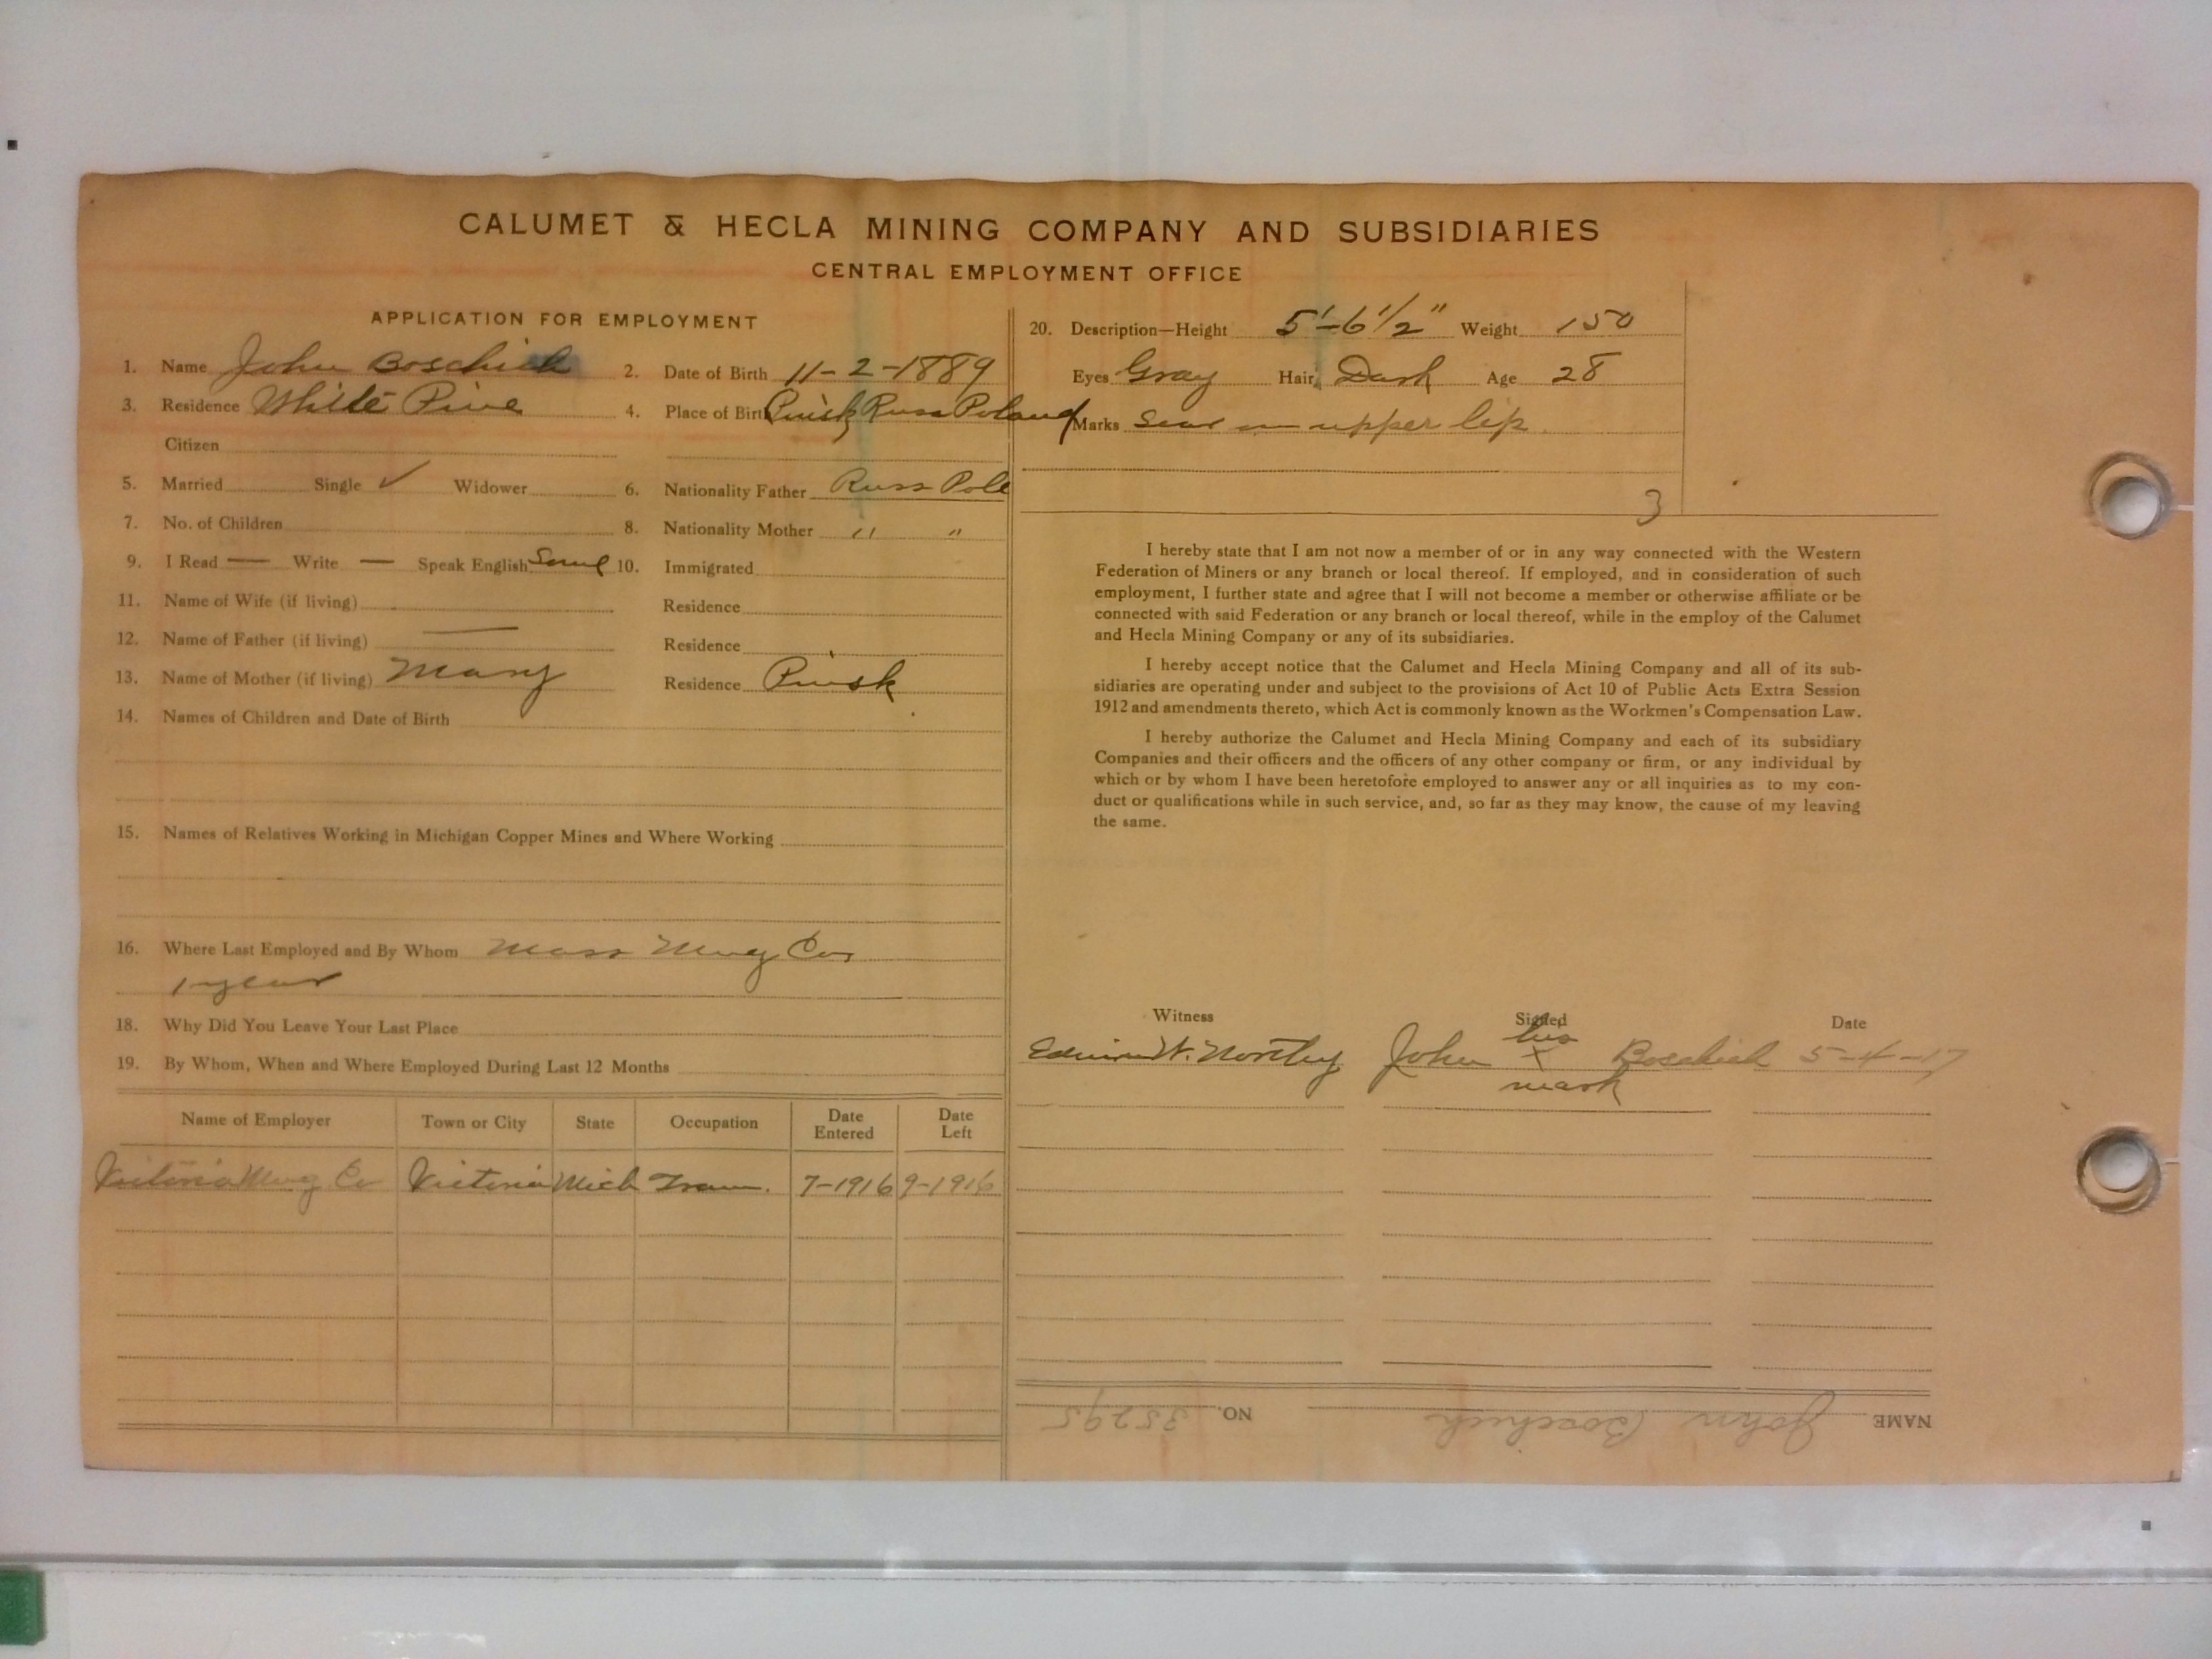 CALUMET & HECLA MINING COMPANY AND SUBSIDIARIES
CENTRAL EMPLOYMENT OFFICE
APPLICATION FOR EMPLOYMENT
1. Name John Boschich 2. Date of Birth 11-2-1889
3. Residence White Pine 4. Place of Birth Pinsk Russ Poland
Citizen
5. Married Single ✓ Widower 6. Nationality Father Russ Pole
7. No. of Children 8. Nationality Mother " "
9. I Read — Write — Speak English Some 10. Immigrated
11. Name of Wife (if living) Residence
12. Name of Father (if living) — Residence
13. Name of Mother (if living) Mary Residence Pinsk
14. Names of Children and Date of Birth
15. Names of Relatives Working in Michigan Copper Mines and Where Working
16. Where Last Employed and By Whom Mass Mng Co
1 year
18. Why Did You Leave Your Last Place
19. By Whom, When and Where Employed During Last 12 Months
Name of Employer Town or City State Occupation Date Entered Date Left
Victoria Mng Co Victoria Mich Tram. 7-1916 9-1916
20. Description—Height 5'-6 1/2" Weight 150
Eyes Gray Hair Dark Age 28
Marks Scar on upper lip.
3
I hereby state that I am not now a member of or in any way connected with the Western
Federation of Miners or any branch or local thereof. If employed, and in consideration of such
employment, I further state and agree that I will not become a member or otherwise affiliate or be
connected with said Federation or any branch or local thereof, while in the employ of the Calumet
and Hecla Mining Company or any of its subsidiaries.
I hereby accept notice that the Calumet and Hecla Mining Company and all of its sub-
sidiaries are operating under and subject to the provisions of Act 10 of Public Acts Extra Session
1912 and amendments thereto, which Act is commonly known as the Workmen's Compensation Law.
I hereby authorize the Calumet and Hecla Mining Company and each of its subsidiary
Companies and their officers and the officers of any other company or firm, or any individual by
which or by whom I have been heretofore employed to answer any or all inquiries as to my con-
duct or qualifications while in such service, and, so far as they may know, the cause of my leaving
the same.
Witness Signed Date
his
Edwin W. Worthy John X Boschich 5-4-17
mark
NAME John Boschich NO. 35295